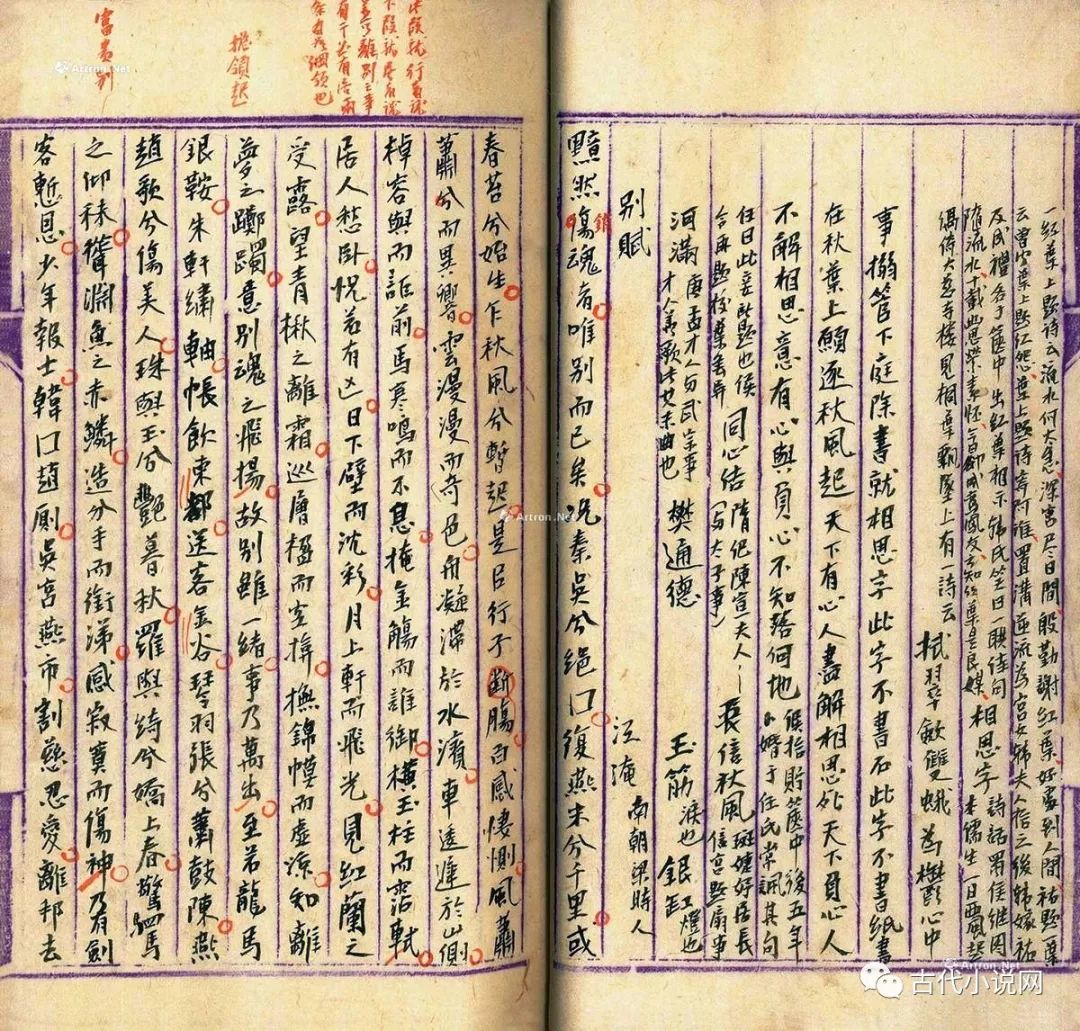 一紅葉上題詩云流水何太急深宮尽日閒殷勤謝紅葉好去到人間祐題一葉
云曾聞葉上題紅怨葉上題詩寄阿誰置溝逆流為宮女韓夫人拾之後韓嫁祐
及成禮各于篋中出紅葉相示韓氏笑曰一聯佳句
隨流水十載幽思滿素怀今日却成鸞鳳友方知紅葉是良媒 相思字 詩話蜀侯继图
本儒生一日西風起
偶倚大慈寺樓見桐葉飄墜上有一詩云 拭翠斂雙蛾為鬱心中
事搦管下庭除書就相思字此字不書石此字不書紙書
在秋葉上願逐秋風起天下有心人盡解相思死天下負心人
不解相思意有心與負心不知落何地 侯拾貯篋中後五年
婚于任氏常諷其句
任曰此妾所題也侯
今再題校葉無异 同心结 隋 陳宣夫人
(写太子事) 長信秋風 班婕妤居長
信宮題扇事
河滿 唐孟才人 武宗事
才人善歌 也 樊通德 玉筋 淚也 銀缸 燈也
别賦 江淹 南朝梁時人
黯然傷魂者唯别而已矣况秦吴兮绝口復燕宋兮千里或
銷
春苔兮始生乍秋風兮暫起是呂行子断腸百感悽惻風蕭
蕭兮而異響雲漫漫而奇色舟凝滞於水濱車逶遲於山側
棹容與而詎前馬寒鳴而不息掩金觴而誰御横玉柱而霑軾
居人愁卧怳若有凶日下壁而沈彩月上軒而飛光見红蘭之
受露望青楸之離霜巡層楹而空揜撫錦幙而虚涼知離
夢之躑躅意别魂之飛揚故别雖一緒事乃萬出至若龍馬
銀鞍朱軒繡軸帳飲東都送客金谷琴羽張兮蕭鼓陳燕
趙歌兮傷美人珠與玉兮艷暮秋羅與綺兮嬌上春驚駟馬
之仰秣聳淵魚之赤鱗造分手而銜涕感寂寞而傷神乃有劍
客慙恩少年報士韓口趙厠吳宮燕市割慈忍愛離邦去
擔鎖起
富貴别
Artron.Net
古代小说网